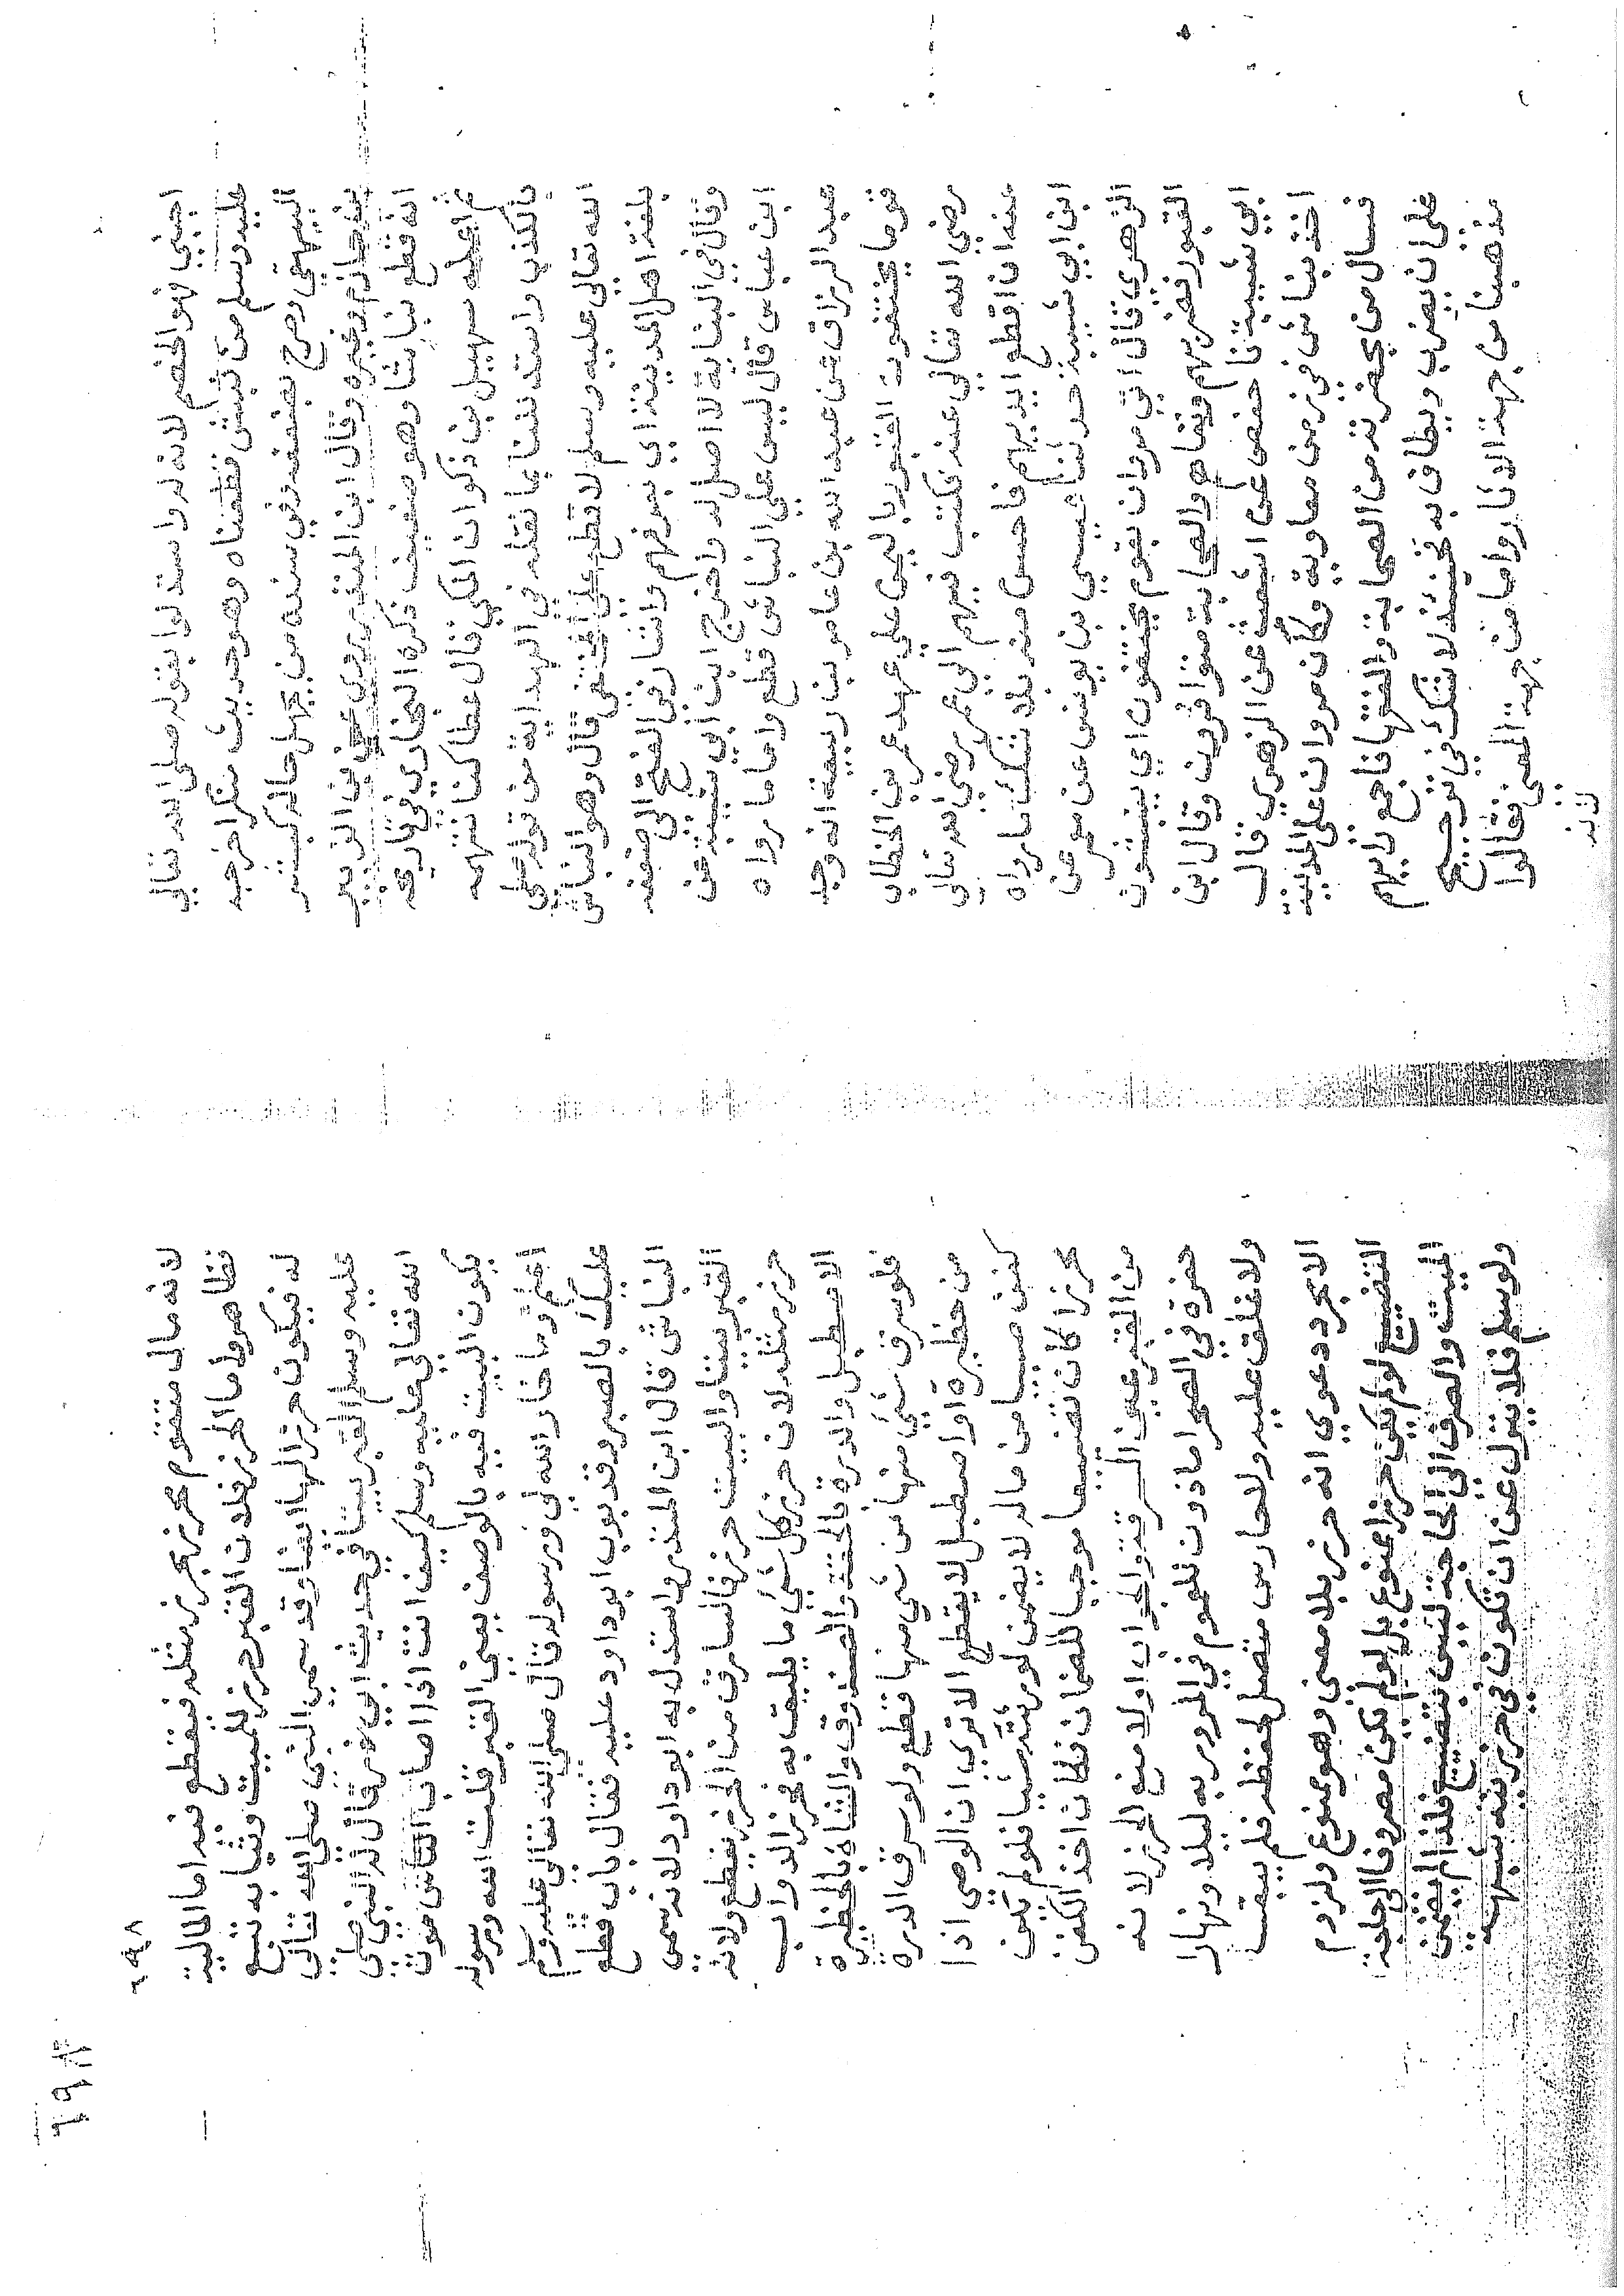 اجنبي فهو الخصم لانه لو استدلوا بقوله صلى الله تعالي
عليه وسلم من نبش قطعناه وهو حديث منكر اخرجه
البيهقي وصرح بضعفه وفي سنده من يجهل حاله كبشر
بن حازم وغيره وقال ابن المنذر روي عن بن الزبير
انه قطع نباشا وهو ضعيف ذكره البخاري في تاريخه
ثم اعله سهيل بن ذكوان المكي قال عطا كنا نتهمه
بالكذب واستدللنا بما نقله في الهداية من قوله صلى
الله تعالي عليه وسلم لا قطع علي المختفي قال وهو النباش
بلغة اهل المدينة اي بعرفهم واشار في الفتح الي ضعفه
وقال في البناية لا اصل له واخرج ابن ابي شيبة عن
ابن عباس قال ليس علي النباش قطع واما ما رواه
عبد الرزاق عن عبد الله بن عامر بن ربيعة انه وجد
قوما يختفون القبور باليمن علي عهد عمر بن الخطاب
رضي الله تعالي عنه فكتب فيهم الي عمر رضي الله تعالي
عنه ان اقطع ايديهم فاحسن منه بلا شك ما رواه
ابن ابي شيبة حدثنا عيسي بن يونس عن معمر عن
الزهري قال اتي مروان بقوم يختفون اي ينبشون
القبور فضربهم ونفاهم والصحابة متوافرون وقال ابن
ابي شيبة نا حفص عن اشعث عن الزهري قال
اخذ نباش في زمن معاوية وكان مروان علي المدينة
فسال من بحضرته من الصحابة والفقها فاجمع رايهم
علي ان يضرب ويطاف به فحينئذ لا شك في ترجيح
مذهبنا من جهة الاثار واما من جهة المعنى فقالوا
لانه
٢٩٨
لانه مال متقوم محرز بحرز مثله فيقطع فيه اما المالية
فظاهر واما الحرز فلان القبر حرز للميت وثيابه تبع
له فيكون حرزا لها ايضا وقد سمي النبي صلى الله تعالى
عليه وسلم القبر بيتا في حديث ابي ذر قال له النبي صلى
الله تعالي عليه وسلم كيف انت اذا اصاب الناس موت
يكون البيت فيه بالوصيف يعني القبر قلت الله ورسوله
اعلم او ما خار الله لي ورسوله قال صلي الله تعالي عليه وسلم
عليك بالصبر وقد بوب ابو داود عليه فقال باب قطع
النباش قال ابن المنذر واستدل به ابو داود لانه سمى
القبر بيتا والبيت حرز فالسارق من الحرز يقطع ولانه
حرز مثله لان حرز كل شي ما يليق به فحرز الدواب
الاصطبل والدرة بالحقة والصندوق والشاة بالحظيرة
فلو سرق شي منها من شي منها قطع ولو سرق الدرة
من حظيرة او اصطبل لا يقطع الا ترى ان الوصي اذا
كفن صبيا من ماله لا يضمن لورثته شيا فلو لم يكن
محرزا كان تضييعا موجبا للضمان فكان اخذ الكفن
من القبر عين السرقة والجواب اولا منع الحرز لانه
حفرة في الصحرا ماذون للعموم في المرور به ليلا ونهارا
ولا غلق عليه ولا حارس متصل لحفظه فلم يبق
الا مجرد دعوي انه حرز بلا معني وهو ممنوع ولزوم
التضييع لو لم يكن حرزا ممنوع بل لو لم يكن مصروفا الي حاجة
الميت والصرف الى الحاجة ليس تضييع فلذا لم يضمن
ولو سلم فلا ينزل عن ان يكون في حرزيته شبهة